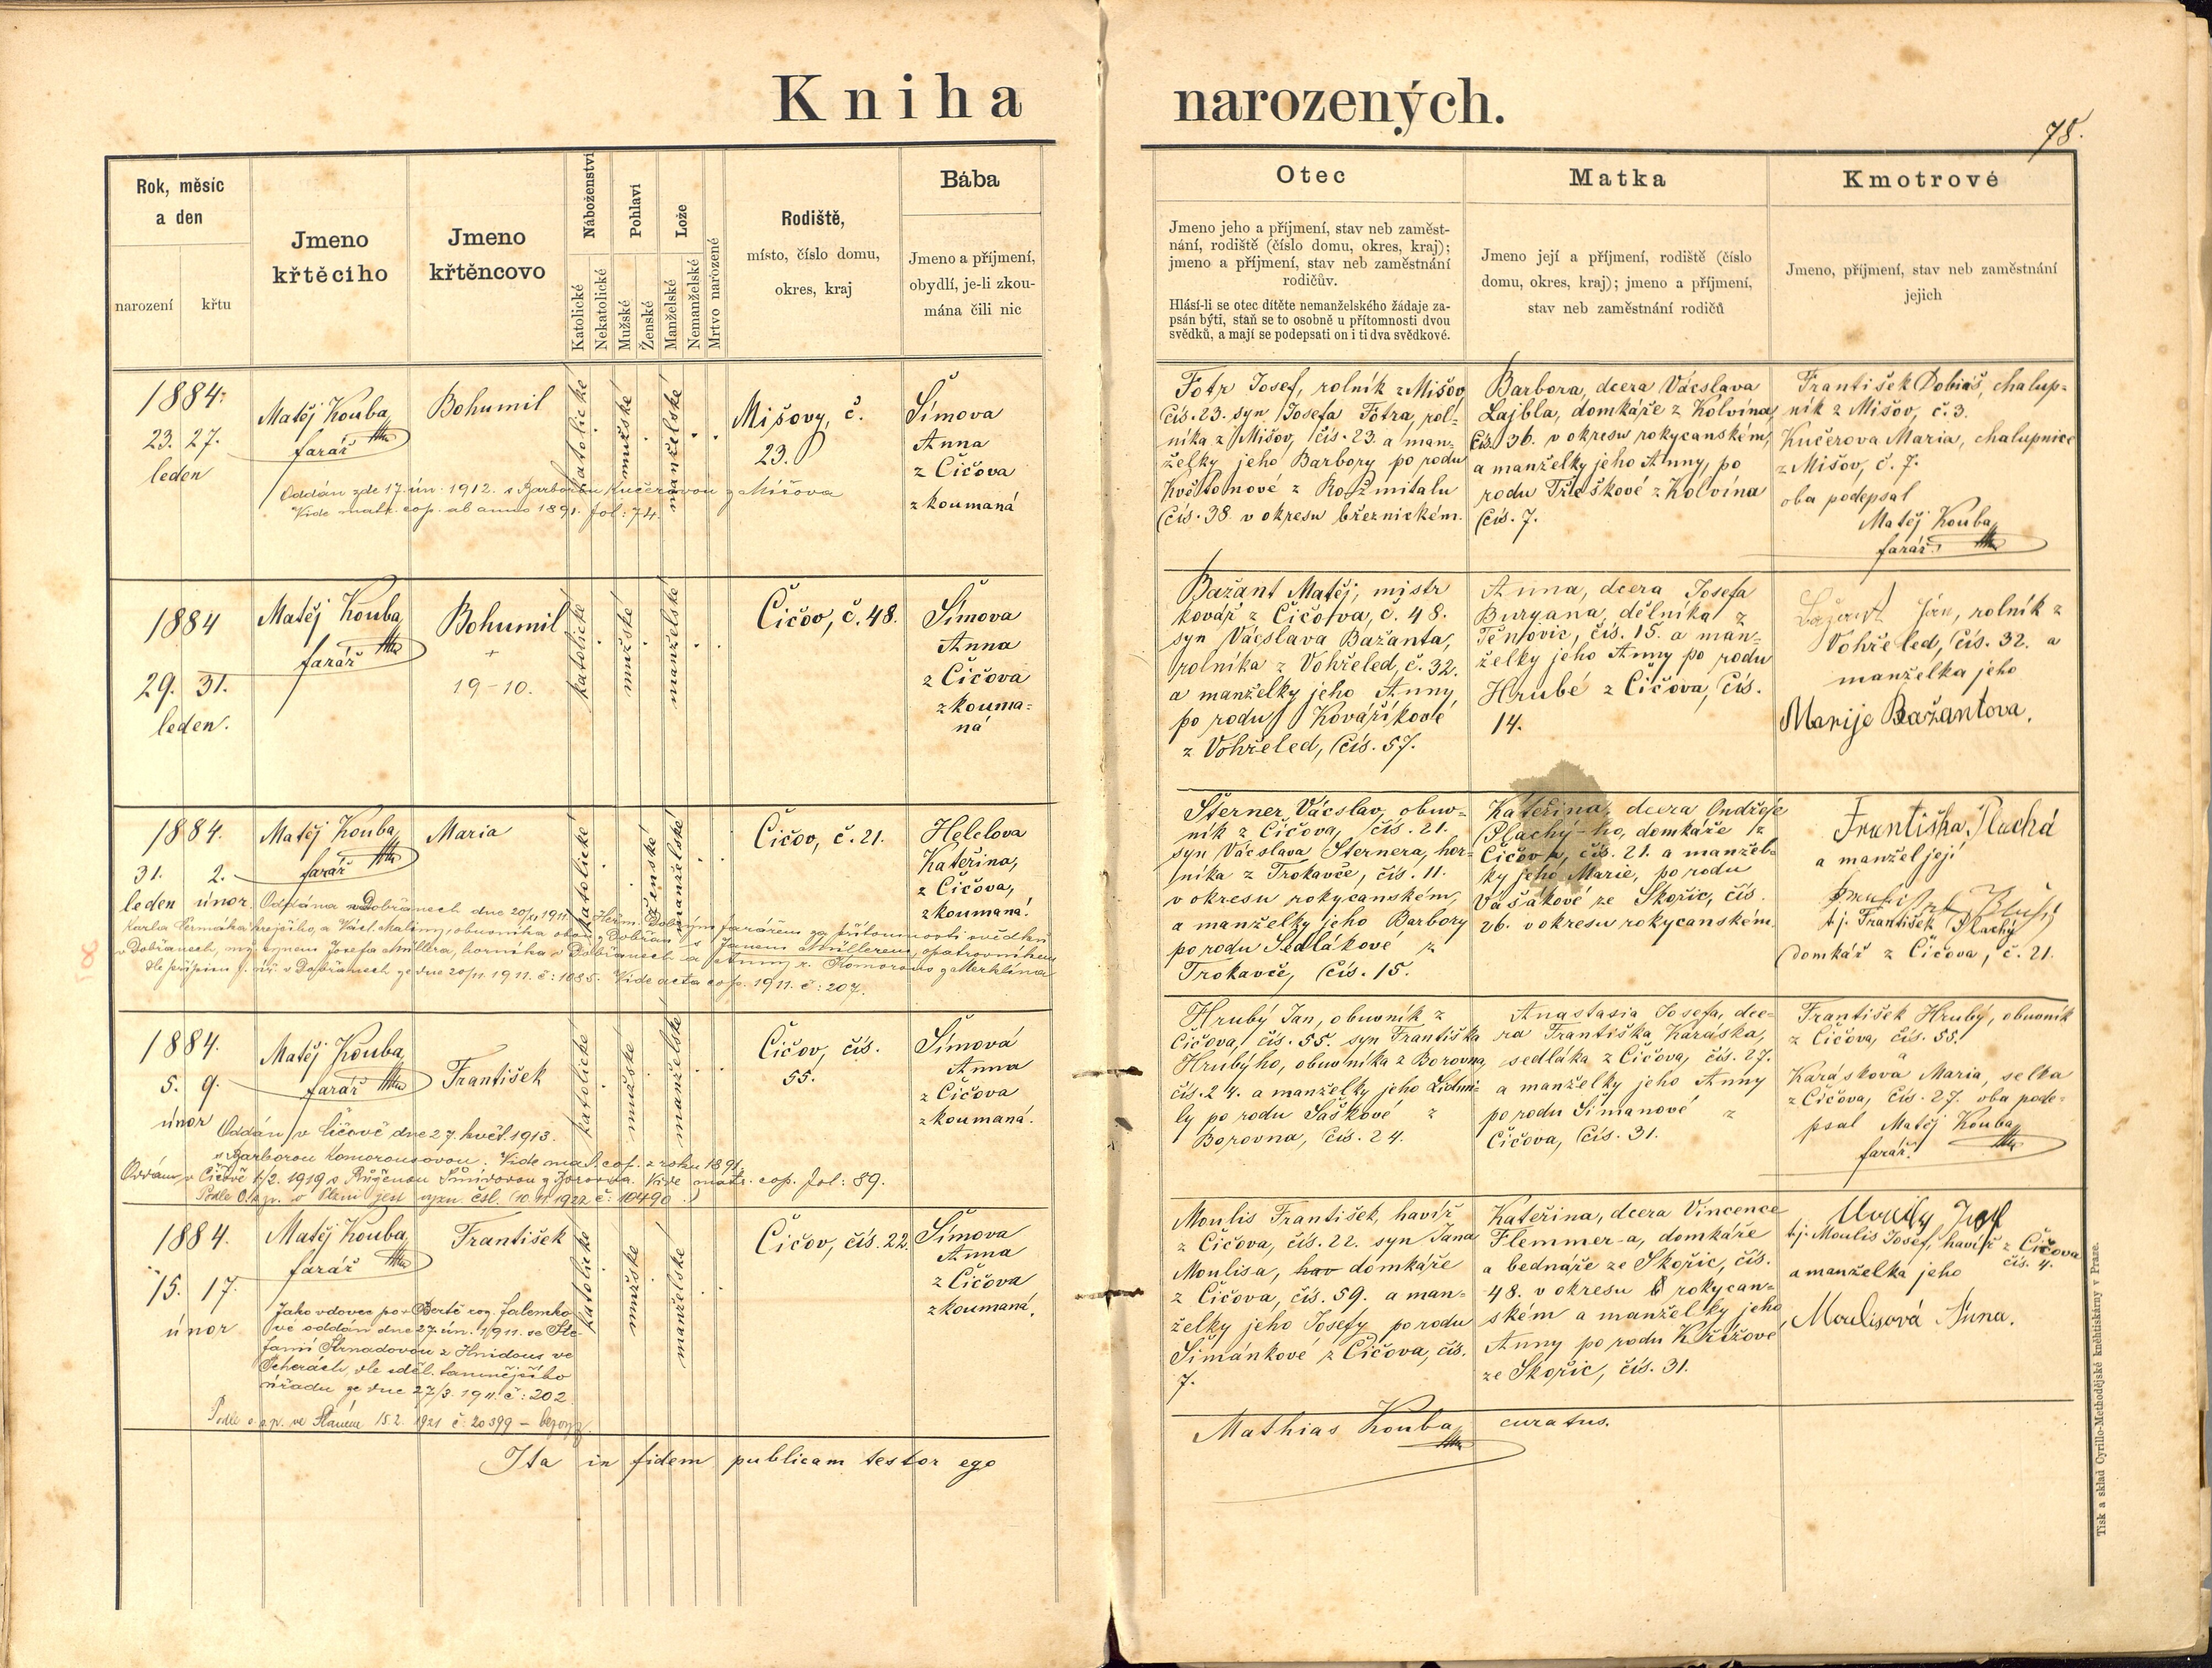 Kniha narozených.
78.
Rok, měsíc
a den
narození
křtu
Jmeno
křtěcího
Jmeno
křtěncovo
Náboženství
Katolické
Nekatolické
Pohlaví
Mužské
Ženské
Lože
Manželské
Nemanželské
Mrtvo narozené
Rodiště,
místo, číslo domu,
okres, kraj
Bába
Jmeno a příjmení,
obydlí, je-li zkou-
mána čili nic
Otec
Jmeno jeho a příjmení, stav neb zaměst-
nání, rodiště (číslo domu, okres, kraj);
jmeno a příjmení, stav neb zaměstnání
rodičův.
Hlásí-li se otec dítěte nemanželského žádaje za-
psán býti, staň se to osobně u přítomnosti dvou
svědků, a mají se podepsati on i ti dva svědkové.
Matka
Jmeno její a příjmení, rodiště (číslo
domu, okres, kraj); jmeno a příjmení,
stav neb zaměstnání rodičů
Kmotrové
Jmeno, příjmení, stav neb zaměstnání
jejich
1884.
23. 27.
leden
Matěj Kouba
farář
Bohumil
katolické
mužské
manželské
Mišovy, č.
23.
Šímova
Anna
z Číčova
zkoumaná
Oddán zde 17. ún. 1912. s Barborou Kučerovou z Míšova
Vide matr. cop. ab anno 1891. fol: 74.
Fótr Josef, rolník z Mišov
čís. 23. syn Josefa Fótra, rol-
níka z Mišov, čís. 23. a man-
želky jeho Barbory po rodu
Květoňové z Rožmitalu
čís. 38. v okresu březnickém.
Barbora, dcera Vácslava
Lajbla, domkáře z Kolvína,
čís. 36. v okresu rokycanském,
a manželky jeho Anny, po
rodu Třeškové z Kolvína
čís. 7.
František Dobiáš, chalup-
ník z Mišov, č. 3.
Kučerova Maria, chalupnice
z Mišov, č. 7.
oba podepsal
Matěj Kouba
farář.
1884
29. 31.
leden.
Matěj Kouba
farář
Bohumil
+
19-10.
katolické
mužské
manželské
Číčov, č. 48.
Šímova
Anna
z Číčova
zkouma-
ná
Bažant Matěj, mistr
kovář z Číčova, č. 48.
syn Vácslava Bažanta,
rolníka z Vohřeled, č. 32.
a manželky jeho Anny
po rodu Kovaříkové
z Vohřeled, čís. 57.
Anna, dcera Josefa
Buryana, dělníka z
Těňovic, čís. 15. a man-
želky jeho Anny po rodu
Hrubé z Číčova, čís.
14.
Bažant Jan, rolník z
Vohřeled, čís. 32. a
manželka jeho
Marije Bažantova.
1884.
31. 2.
leden únor
Matěj Kouba
farář
Maria
katolické
ženské
manželské
Číčov, č. 21.
Helclova
Kateřina,
z Číčova,
zkoumaná.
Oddána v Dobřanech dne 20/11 1911 Heřm. Dobrým farářem za přítomnosti svědků
Karla Čermáka krejčího, a Václ. Maliny, obuvníka oba z Dobřan s Janem Müllerem, opatrovníkem
v Dobřanech, man. synem Josefa Müllera, horníka v Dobřanech a Anny r. Komorous z Merklína
dle přípisu f. úř. v Dobřanech ze dne 20/11. 1911. č: 1085. Vide acta cop. 1911. č: 207.
Šterner Vácslav, obuv-
ník z Číčova, čís. 21.
syn Vácslava Šternera, hor-
níka z Trokavče, čís. 11.
v okresu rokycanském,
a manželky jeho Barbory
po rodu Sedlákové z
Trokavče, čís. 15.
Kateřina, dcera Ondřeje
Plachý-ho, domkáře z
Číčova, čís. 21. a manžel-
ky jeho Marie, po rodu
Vašákové ze Skořic, čís.
26. v okresu rokycanském.
Františka Plachá
a manžel její
t. j. František Plachý
domkář z Číčova, č. 21.
1884.
5. 9.
únor
Matěj Kouba
farář
František
katolické
mužské
manželské
Číčov, čís.
55.
Šímová
Anna
z Číčova
zkoumaná.
Oddán v Číčově dne 27. květ. 1913.
s Barborou Komorousovou. Vide mat. cop. z roku 1891.
Oddán v Číčově 1/2. 1919 s Růženou Šmídovou z Borovna. Vide matr. cop. fol: 89.
Hrubý Jan, obuvník z
Číčova, čís. 55. syn Františka
Hrubýho, obuvníka z Borovna,
čís. 24. a manželky jeho Lidmi-
ly po rodu Šaškové z
Borovna, čís. 24.
Anastasia Josefa, dce-
ra Františka Karáska,
sedláka z Číčova, čís. 27.
a manželky jeho Anny
po rodu Šimanové z
Číčova, čís. 31.
František Hrubý, obuvník
z Číčova, čís. 55.
a
Karáskova Maria, selka
z Číčova, čís. 27. oba pode-
psal Matěj Kouba
farář.
1884.
15. 17.
únor
Matěj Kouba
farář
František
katolické
mužské
manželské
Číčov, čís. 22.
Šímova
Anna
z Číčova
zkoumaná.
Jako vdovec po Bertě roz. Jalemko-
vé oddán dne 27. ún. 1911. se Šte-
fanií Strnadovou z Hnidous ve
Pcherách, dle sděl. tamnějšího
úřadu ze dne 27/3. 1911. č: 202
Podle o. z. p. ve Slaném 15.2. 1921 č: 20399 -
Moulis František, havíř
z Číčova, čís. 22. syn Jana
Moulisa, hav domkáře
z Číčova, čís. 59. a man-
želky jeho Josefy po rodu
Šimánkové z Číčova, čís.
7.
Kateřina, dcera Vincence
Flemmer-a, domkáře
a bednáře ze Skořic, čís.
48. v okresu rokycan-
ském a manželky jeho
Anny po rodu Křížové
ze Skořic, čís. 31.
t. j. Moulis Josef, havíř z Číčova
čís. 4.
a manželka jeho
Moulisová Anna.
Ita in fidem publicam testor ego
Mathias Kouba curatus.
Tisk a sklad Cyrillo-Methodějské knihtiskárny v Praze.